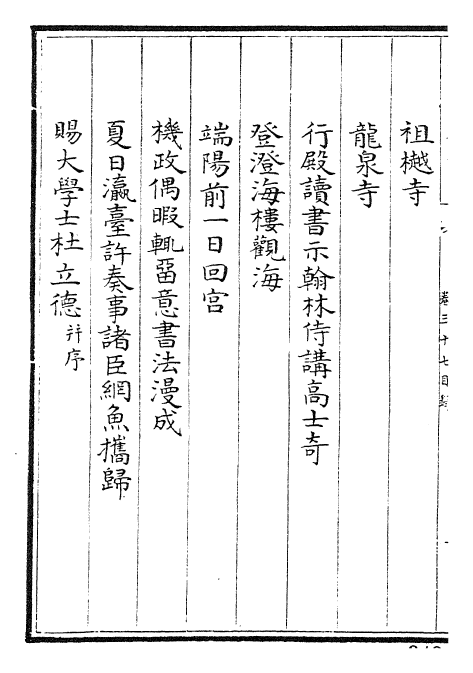 祖樾寺
龍泉寺
行殿讀書示翰林侍講高士奇
登澄海樓觀海
端陽前一日回宮
機政偶暇輒畱意書法漫成
夏日瀛臺許奏事諸臣網魚攜歸
賜大學士杜立德并序
卷三十七目錄